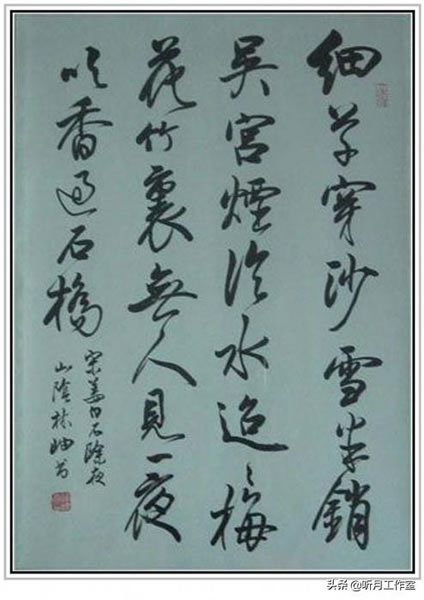 細草穿沙雪半銷
吳宮煙冷水迢〻梅
花竹裏無人見一夜
吹香過石橋
宋姜白石除夜
山陰林岫書
头条 @听月工作室